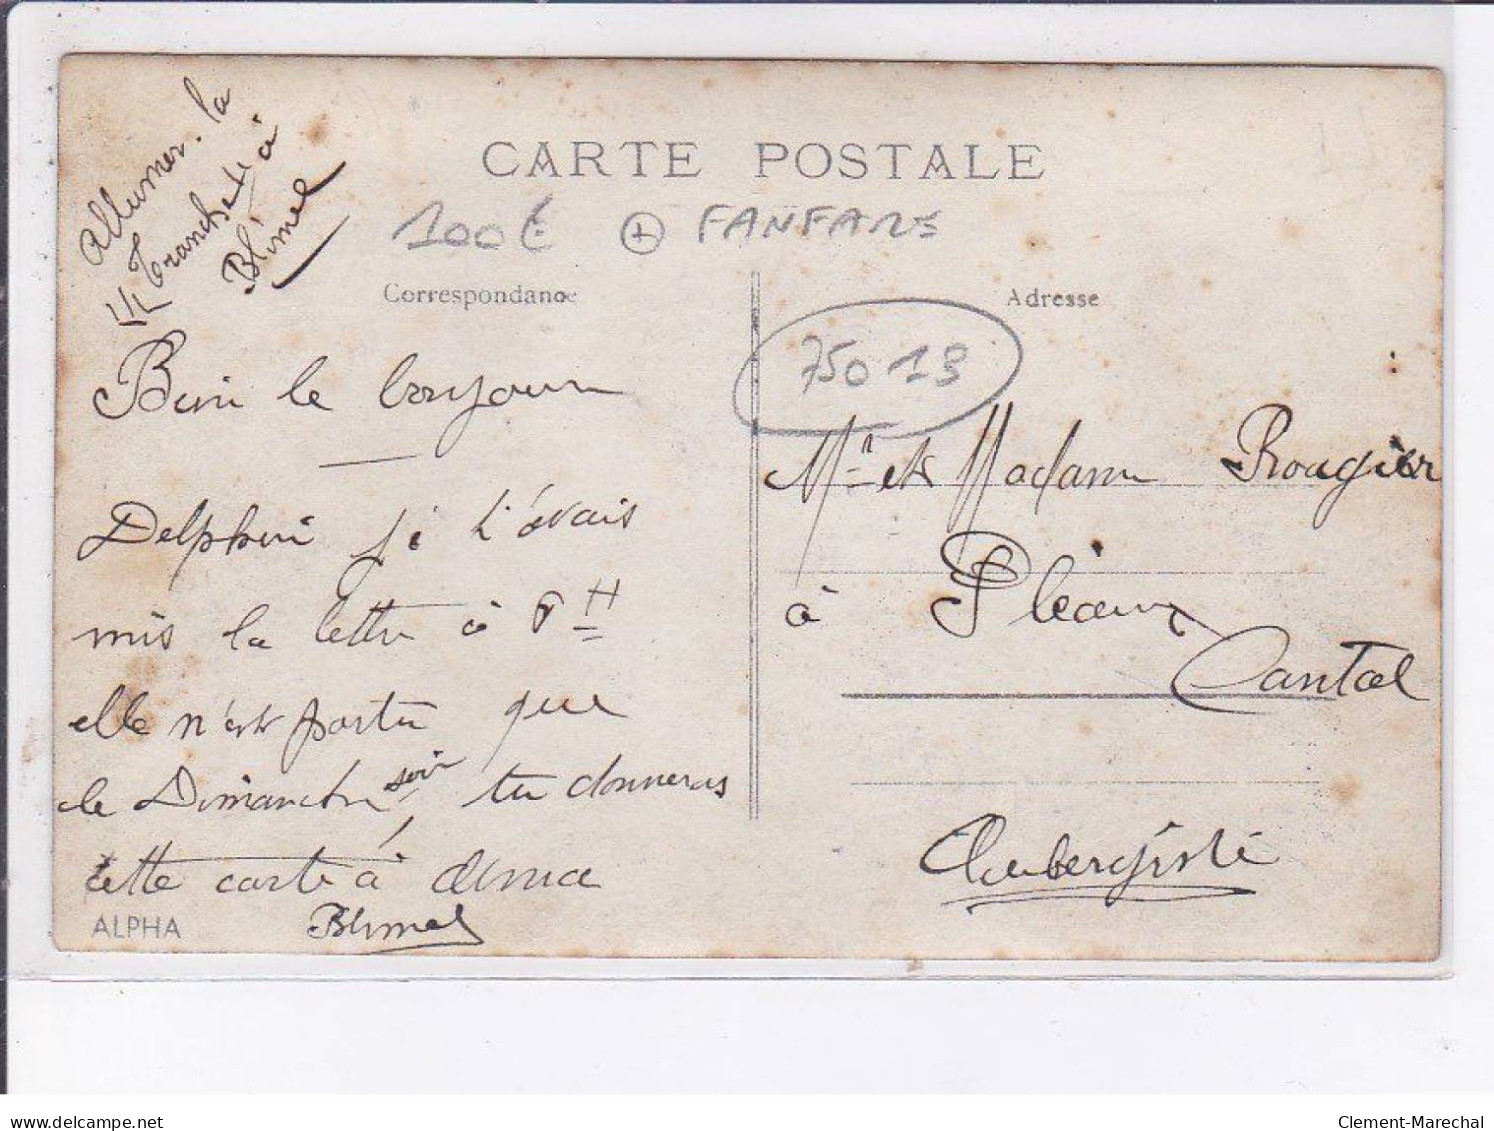 Allumer. la
Tranche à
Blimel
CARTE POSTALE
100€ + FANFARE
Correspondance
Adresse
75013
Bien le bonjour
Delphine si j'avais
mis la lettre à 8 H
elle n'est partie que
le Dimanche soir tu donneras
cette carte à
Blimel
ALPHA
Mr et Madame Rougier
à Pléaux
Cantal
Aubergiste
delcampe.net
Clement-Marechal